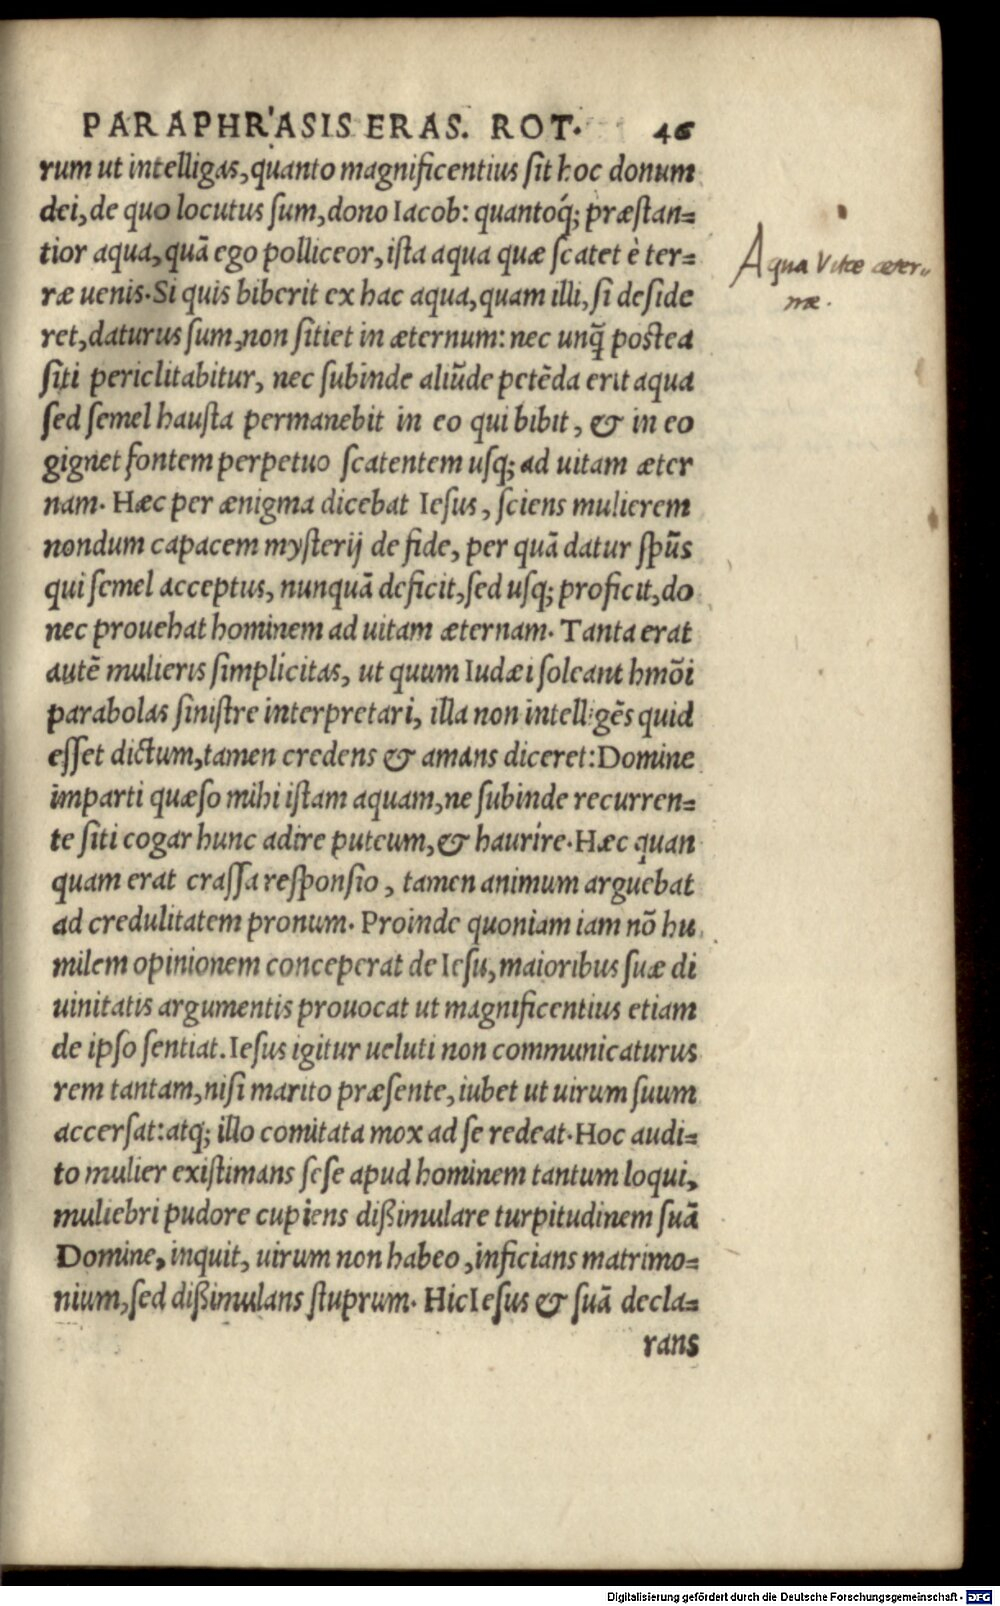 PARAPHRASIS ERAS. ROT. 46
rum ut intelligas, quanto magnificentius ſit hoc donum
dei, de quo locutus ſum, dono Iacob: quantoq́; præſtan=
tior aqua, quā ego polliceor, iſta aqua quæ ſcatet è ter=
ræ uenis. Si quis biberit ex hac aqua, quam illi, ſi deſide
ret, daturus ſum, non ſitiet in æternum: nec unq̄ poſtea
ſiti periclitabitur, nec ſubinde aliūde petēda erit aqua
ſed ſemel hauſta permanebit in eo qui bibit, & in eo
gignet fontem perpetuo ſcatentem uſq; ad uitam æter
nam. Hæc per ænigma dicebat Ieſus, ſciens mulierem
nondum capacem myſterij de fide, per quā datur ſpūs
qui ſemel acceptus, nunquā deficit, ſed uſq; proficit, do
nec prouehat hominem ad uitam æternam. Tanta erat
autē mulieris ſimplicitas, ut quum Iudæi ſoleant hmōi
parabolas ſiniſtre interpretari, illa non intelligēs quid
eſſet dictum, tamen credens & amans diceret: Domine
imparti quæſo mihi iſtam aquam, ne ſubinde recurren=
te ſiti cogar hunc adire puteum, & haurire. Hæc quan
quam erat craſſa reſponſio, tamen animum arguebat
ad credulitatem pronum. Proinde quoniam iam nō hu
milem opinionem conceperat de Ieſu, maioribus ſuæ di
uinitatis argumentis prouocat ut magnificentius etiam
de ipſo ſentiat. Ieſus igitur ueluti non communicaturus
rem tantam, niſi marito præſente, iubet ut uirum ſuum
accerſat: atq; illo comitata mox ad ſe redeat. Hoc audi=
to mulier exiſtimans ſeſe apud hominem tantum loqui,
muliebri pudore cupiens dißimulare turpitudinem ſuā
Domine, inquit, uirum non habeo, inficians matrimo=
nium, ſed dißimulans ſtuprum. Hic Ieſus & ſuā decla=
rans
Aqua Vitæ æter„
næ.
Digitalisierung gefördert durch die Deutsche Forschungsgemeinschaft - DFG